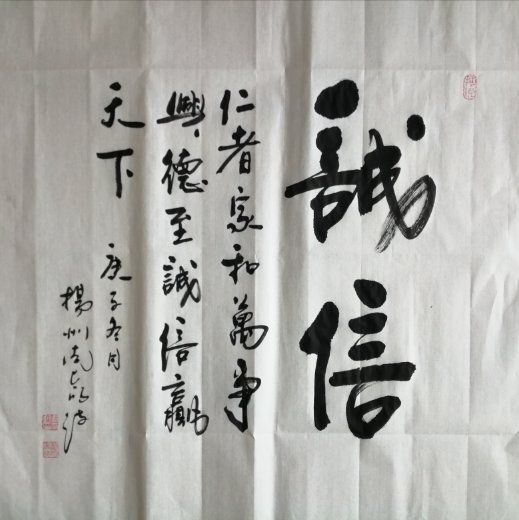 誠信
仁者家和萬事
興、德至誠信贏
天下
庚子冬月
揚州